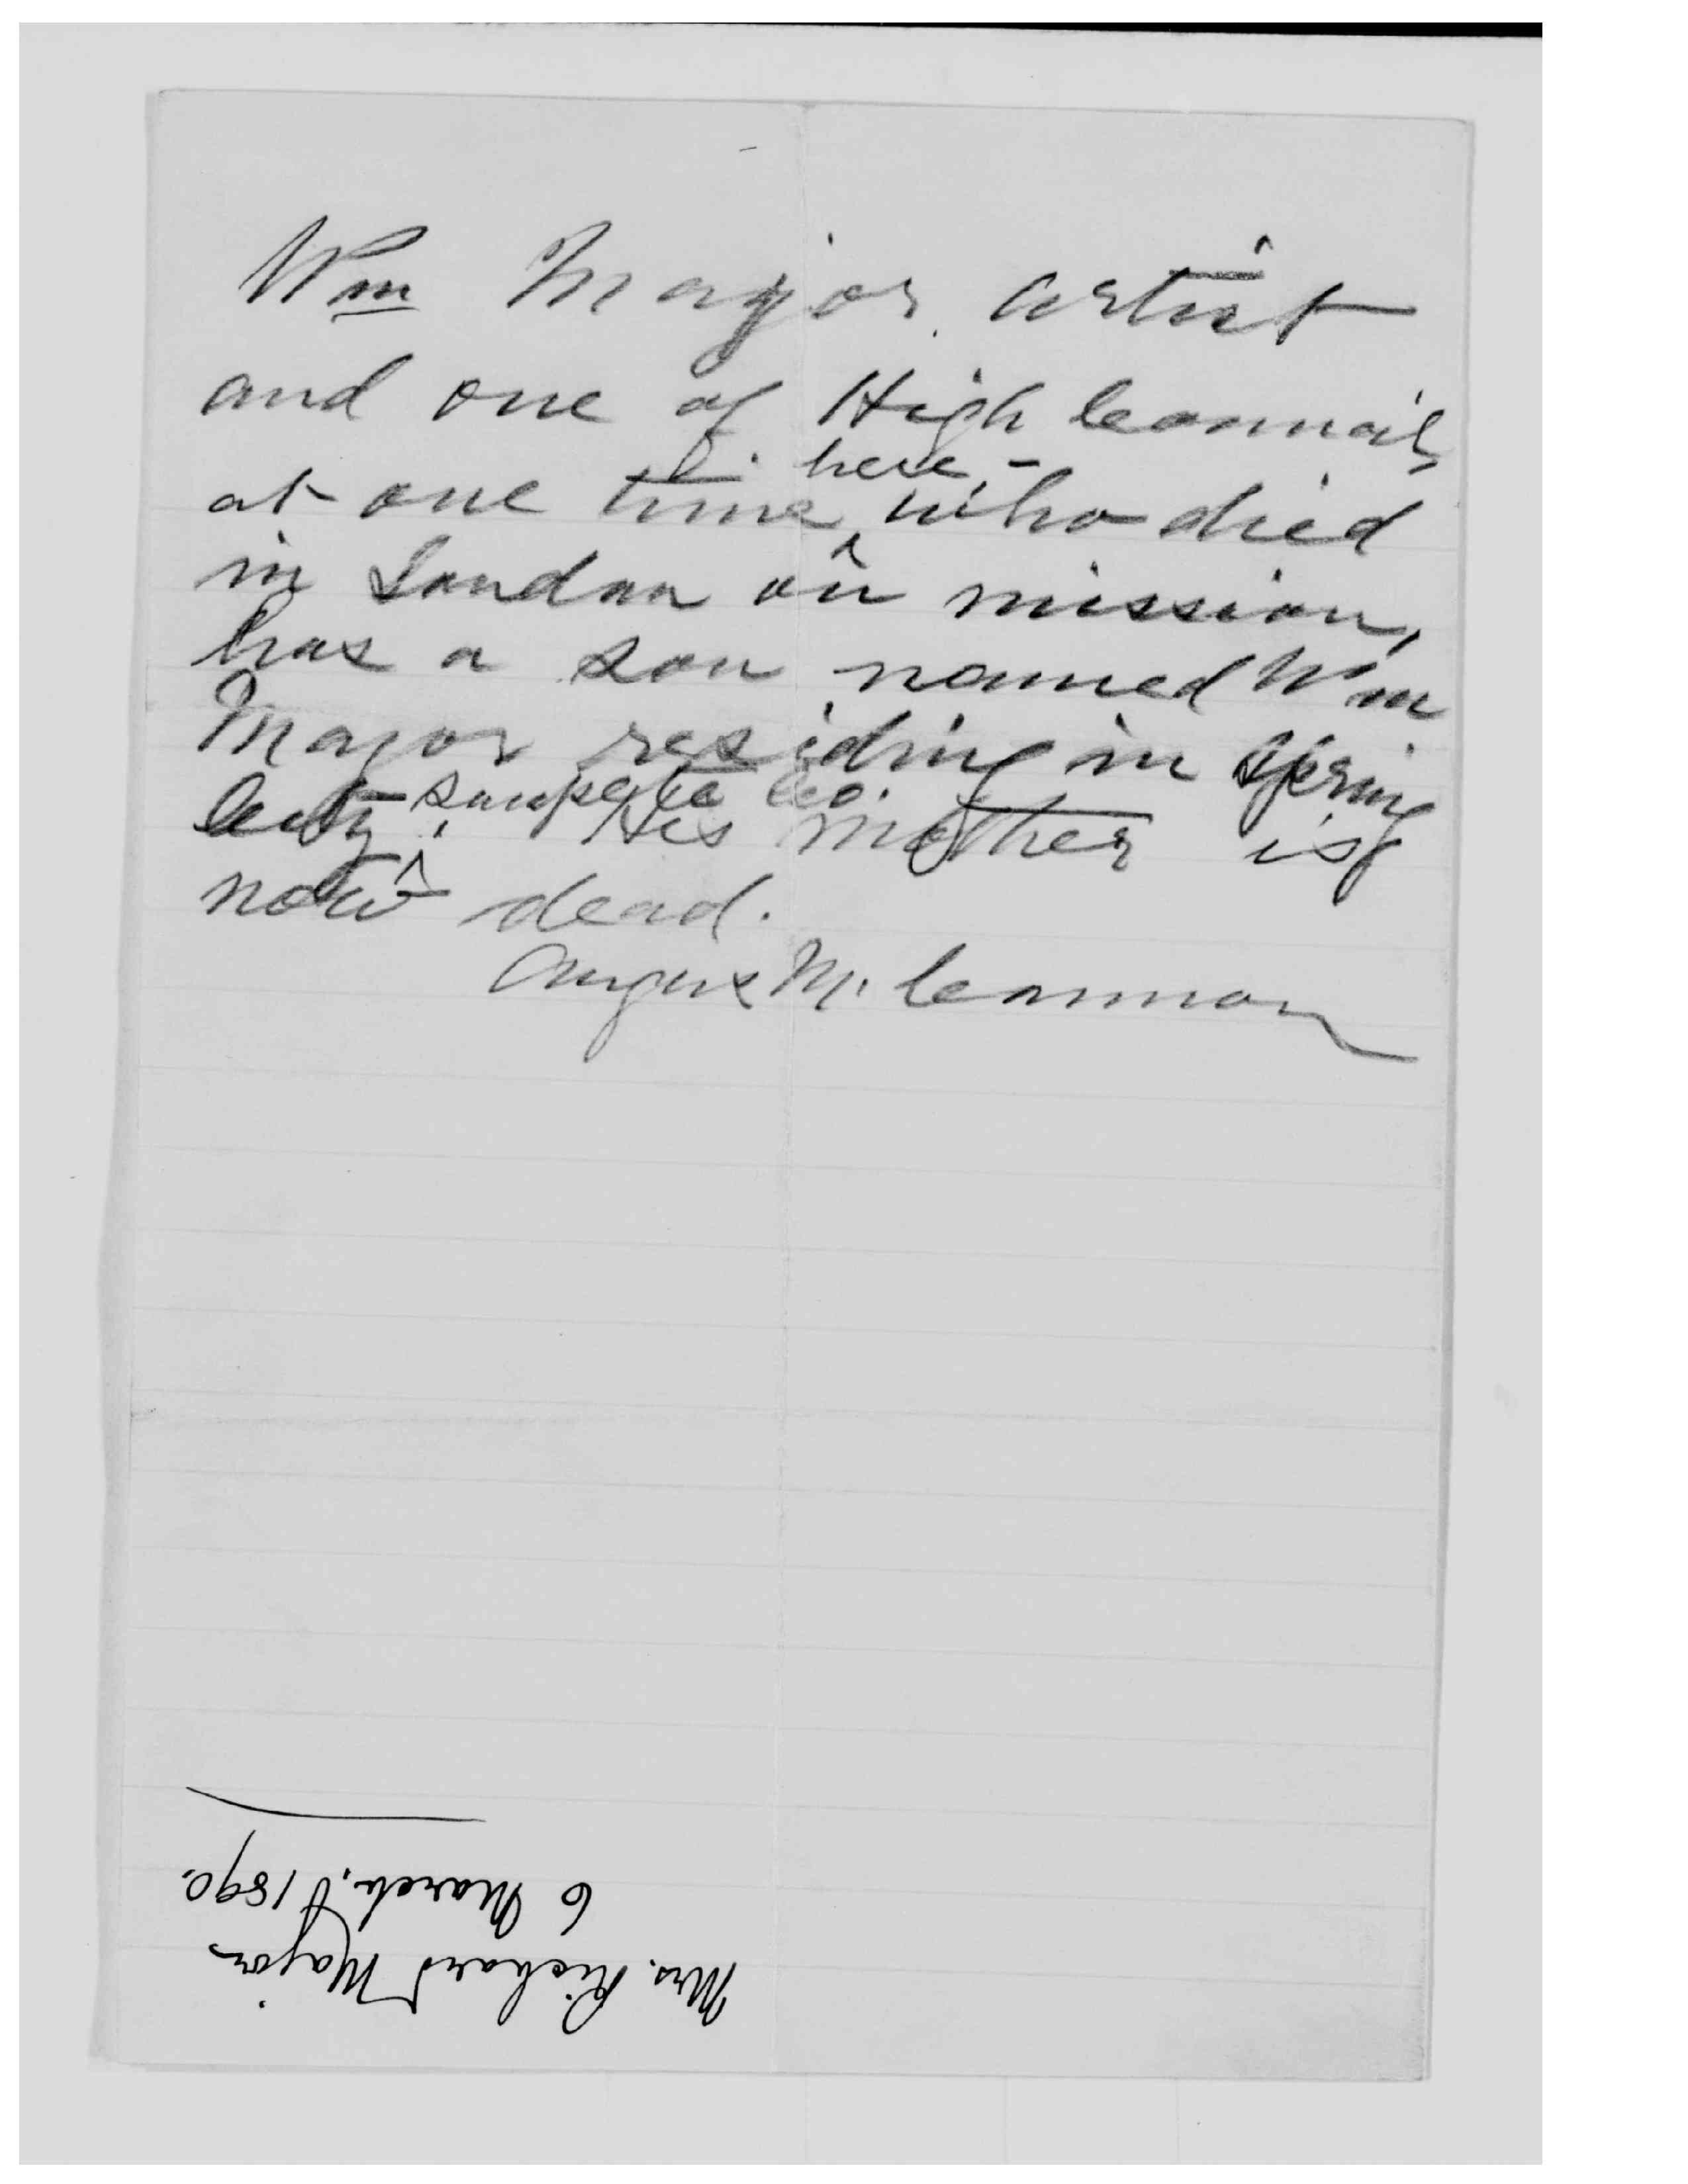 Wm Major artist
and one of High Council
at one time here, who died
in London on mission,
has a son named Wm
Major residing in Spring
City Sanpete Co. His mother is
now dead.
Angus M. Cannon
Mrs. Richard Major
6 March, 1890.